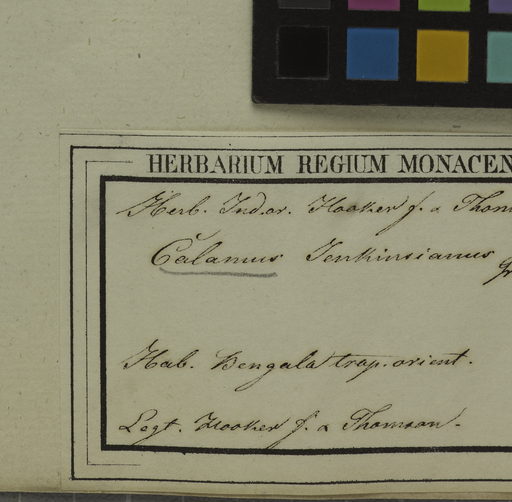 HERBARIUM REGIUM MONACEN
Herb. Ind. or. Hooker f. & Thom
Calamus Jenkinsianus
Hab. Bengala trop. orient.
Legt. Hooker f. & Thomson.